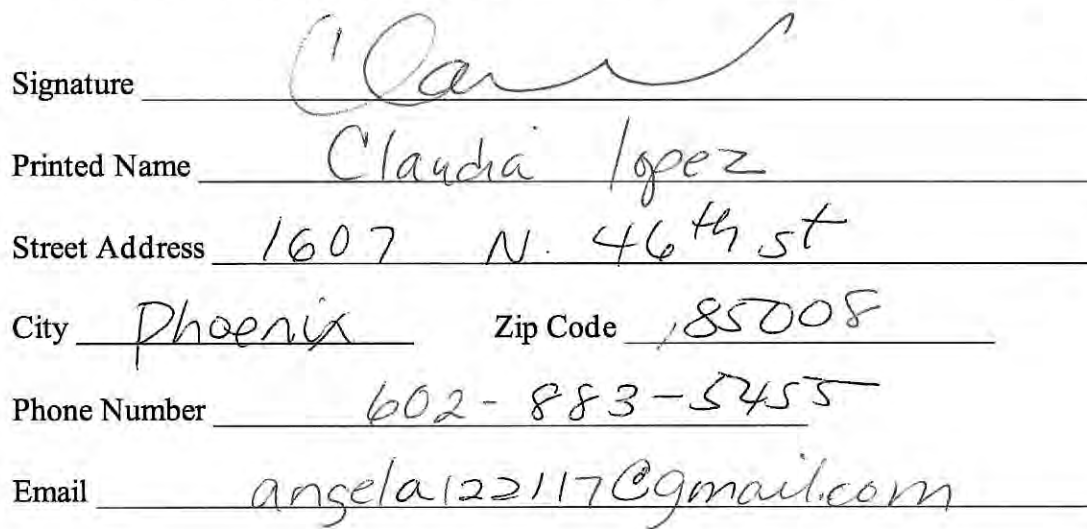 Signature Clau
Printed Name Claudia lopez
Street Address 1607 N. 46th st
City Phoenix Zip Code 85008
Phone Number 602-883-5455
Email angela122117@gmail.com